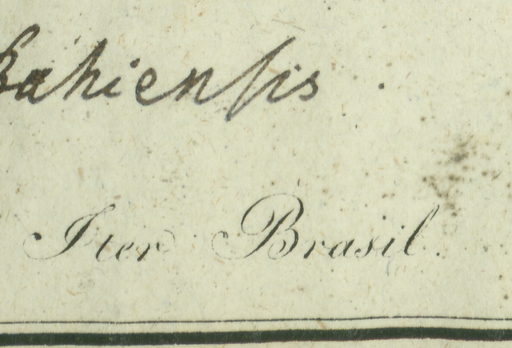 Bahiensis .
Iter Brasil.